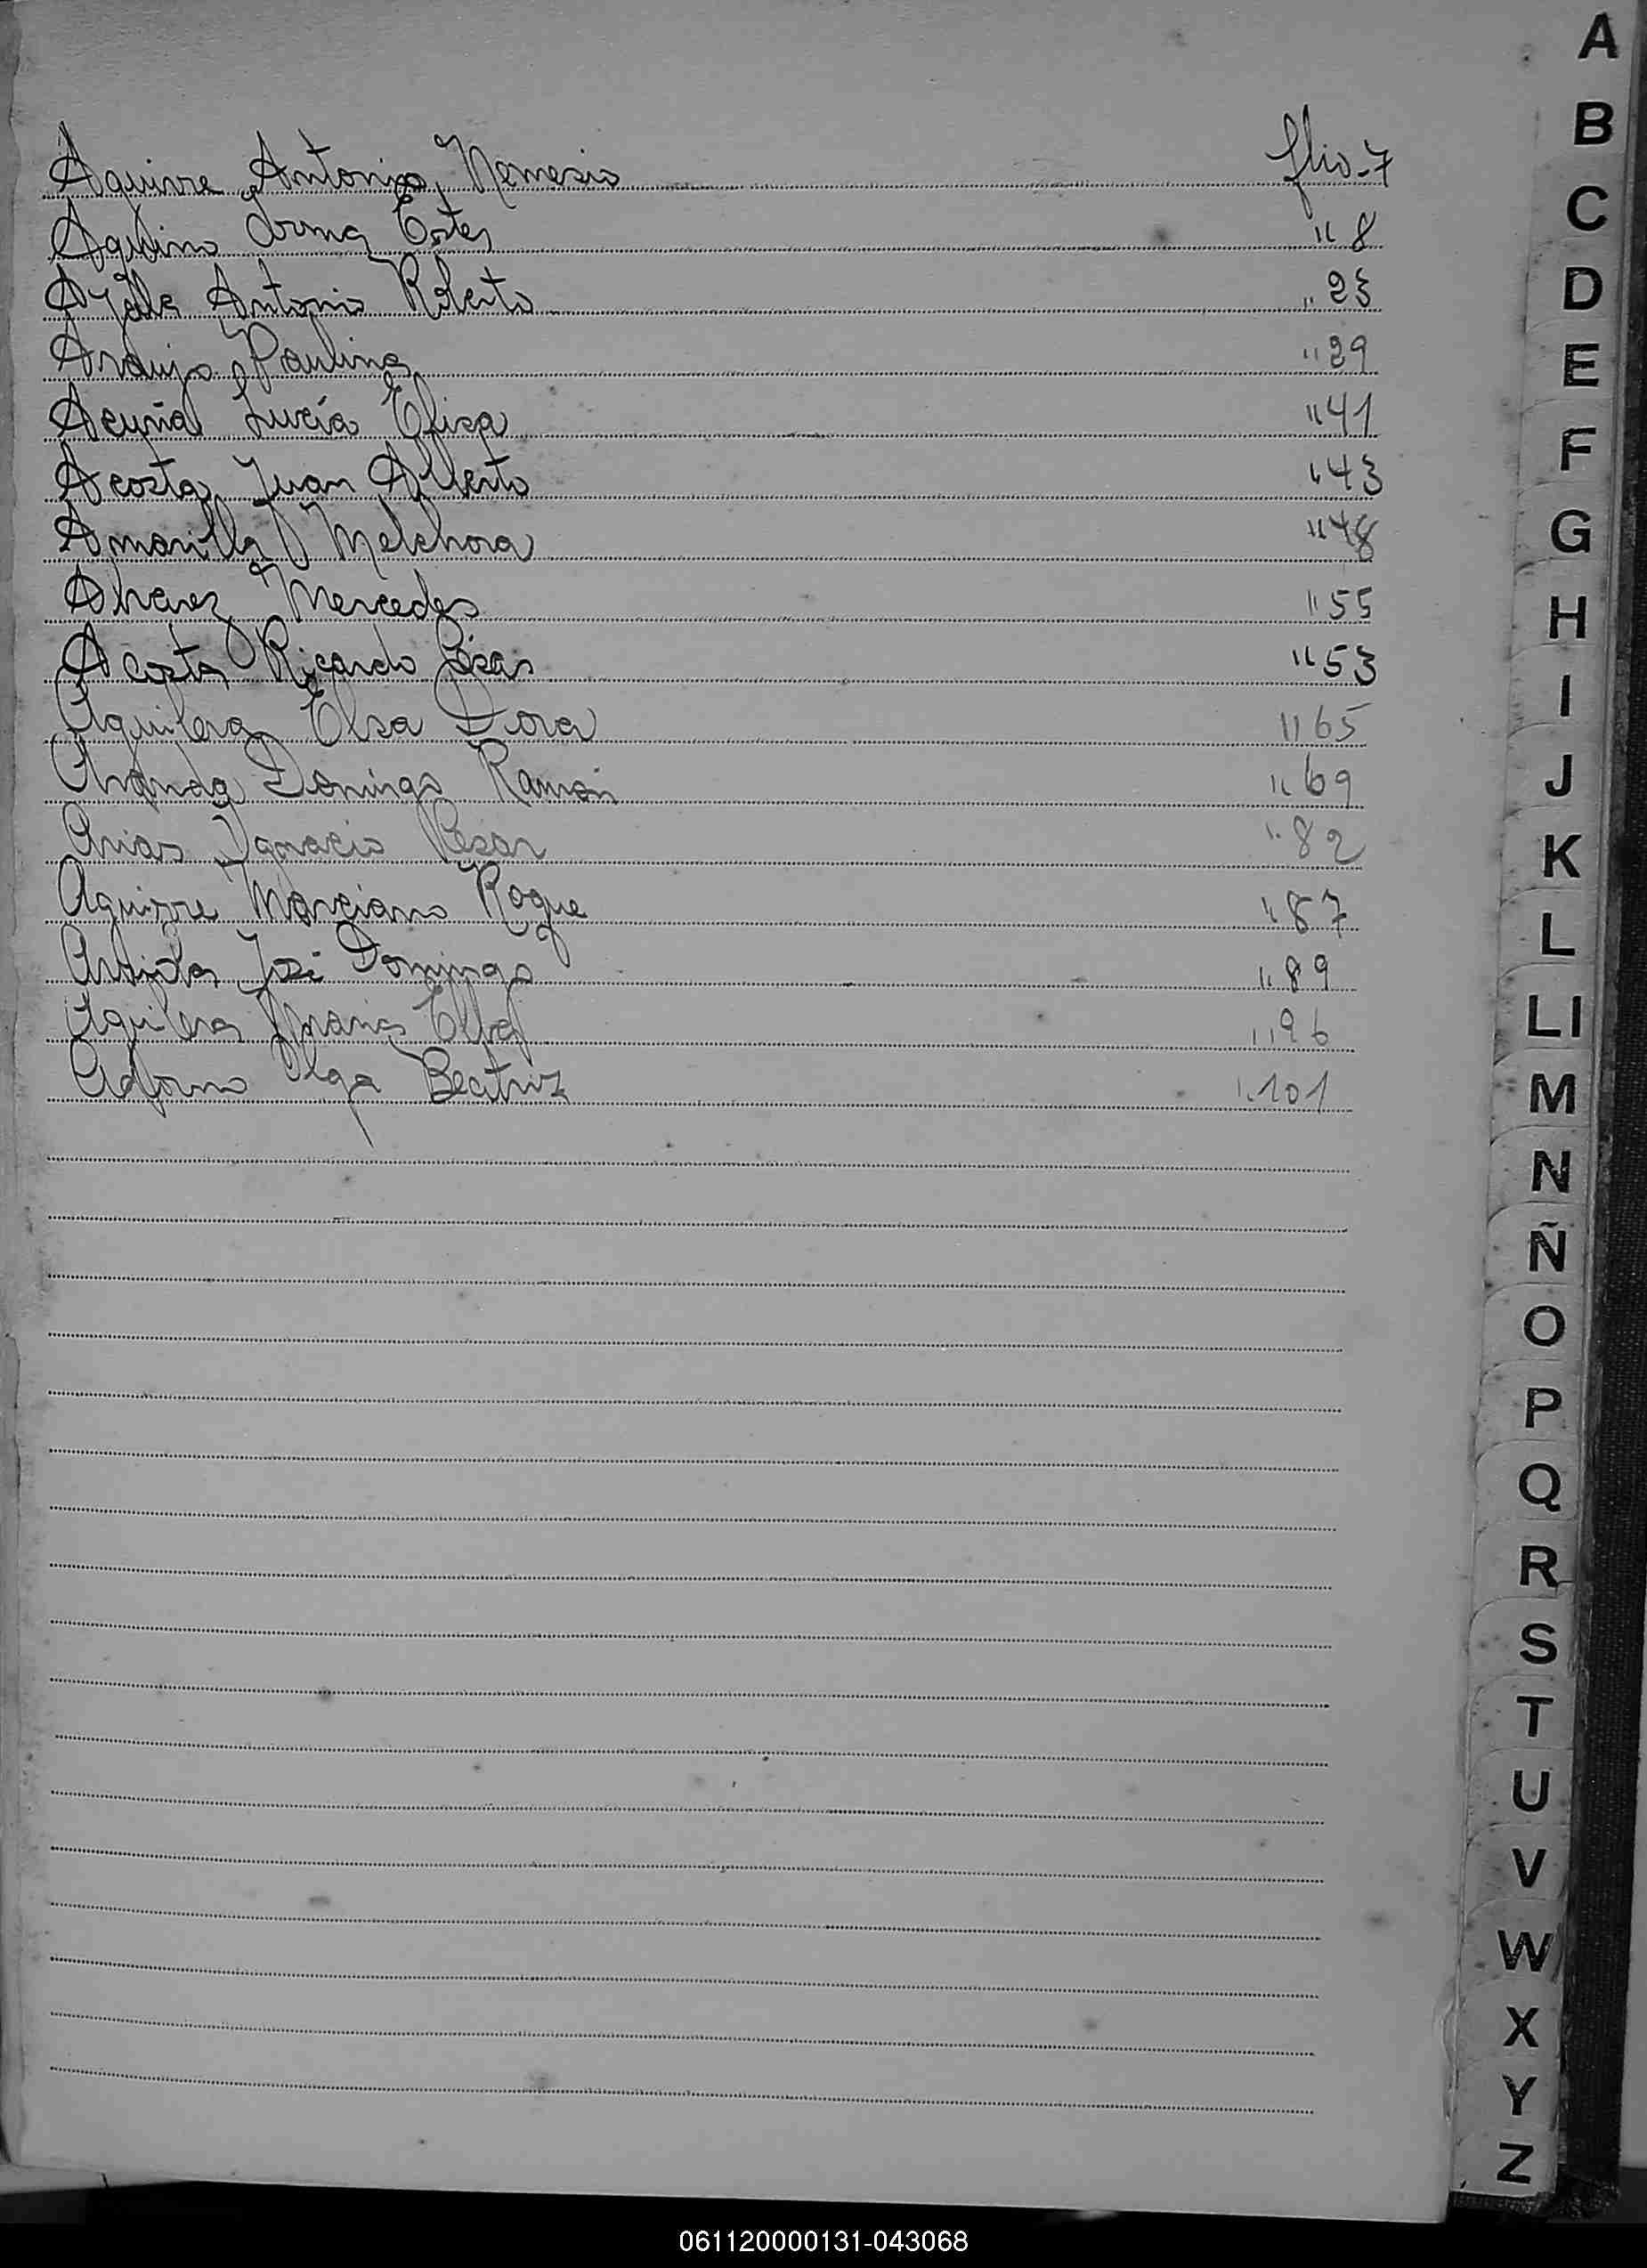 Aguirre Antonio Nemesio flio-7
Aquino Irma Ester " 8
Ayala Antonio Roberto " 23
Araujo Paulina " 29
Acuña Lucía Elisa " 41
Acosta Juan Alberto " 43
Amarilla Melchora " 48
Alvarez Mercedes " 55
Acosta Ricardo César " 53
Aguilera Elsa Dora " 65
Aranda Domingo Ramón " 69
Arias Ignacio César " 82
Aguirre Marciano Roque " 87
José Domingo " 89
Aguilera María " 96
Adorno Olga Beatriz " 101
A
B
C
D
E
F
G
H
I
J
K
L
Ll
M
N
Ñ
O
P
Q
R
S
T
U
V
W
X
Y
Z
061120000131-043068